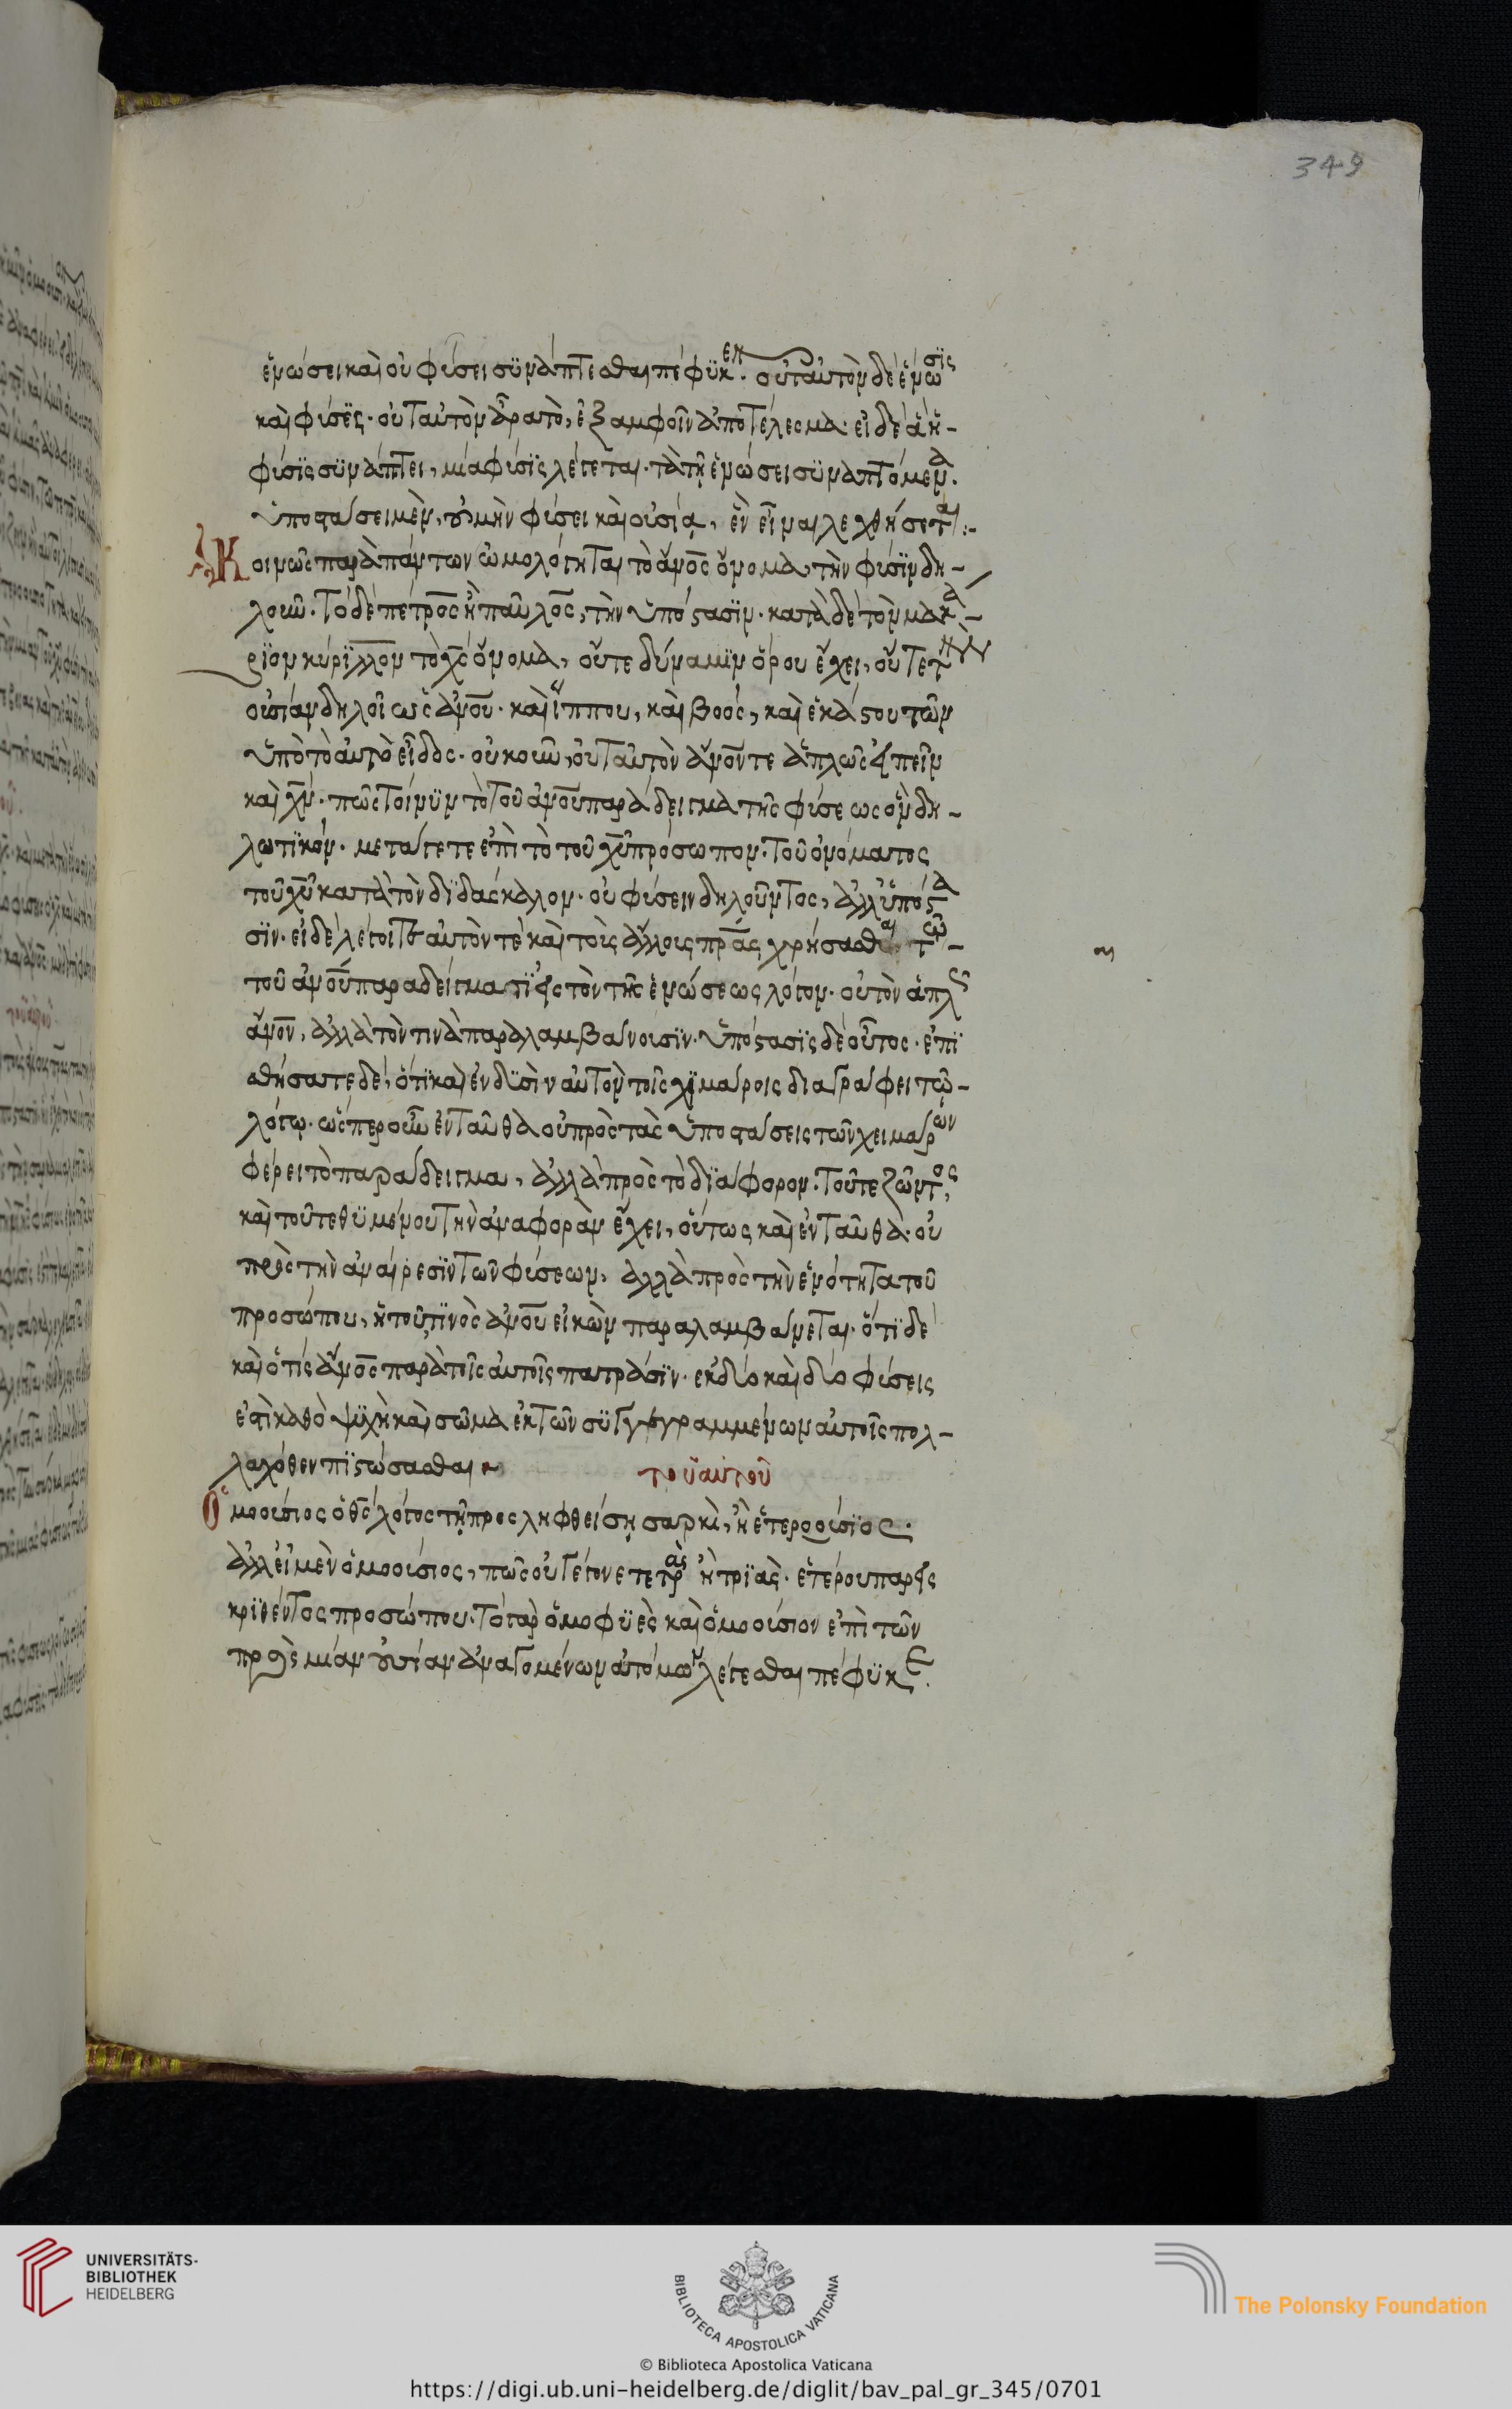 349
ἑνώσει καὶ οὐ φύσει συνάπτεσθαι πέφυκεν. οὐ ταυτὸν δὲ ἕνωσις
καὶ φύσις. οὐ ταυτὸν ἄρα τὸ, ἐξ αμφοῖν ἀποτέλεσμα. εἰ δὲ ἃ ἡ –
φύσις συνάπτει, μία φύσις λέγεται. τὰ τῇ ἑνώσει συναπτόμενα.
ὑποστάσει μὲν, οὐ μὴν φύσει καὶ οὐσίᾳ, ἓν εἶναι λεχθήσεται :-
Κοινῶς παρὰ πάντων ὡμολόγηται τὸ ἄνος ὄνομα, τὴν φύσιν δη –
λοῦν. Τὸ δὲ πέτρος ἢ παῦλος, τὴν ὑπόστασιν. κατὰ δὲ τὸν μακά –
ριον κύριλλον τὸ χς ὄνομα, οὔτε δύναμιν ὅρου ἔχει, οὔτε τὴν
οὐσίαν δηλοῖ ὡς ἀνου. καὶ ἵππου, καὶ βοός, καὶ ἑκάστου τῶν
ὑπὸ τὸ αὐτὸ εἶδος. οὐκοῦν, οὐ ταυτὸν ἄνον τε ἁπλῶς εἰπεῖν
καὶ χν. πῶς τοίνυν τὸ τοῦ ἀνου παράδειγμα τῆς φύσεως ὂν δη –
λωτικόν. μετάγετε ἐπὶ τὸ τοῦ χυ πρόσωπον. Τοῦ ὀνόματος
τοῦ χυ κατὰ τὸν διδάσκαλον. οὐ φύσειν δηλοῦντος, ἀλλ' ὑπόστα
σιν. εἰ δὲ λέγοιτε αὐτὸν τὲ καὶ τοὺς ἄλλους πρας χρήσασθαι τῶ –
τοῦ ἀνου παραδείγματι εἰς τὸν τῆς ἑνώσεως λόγον. οὐ τὸν ἁπλῶς
ἄνον, ἀλλὰ τὸν τινὰ παραλαμβάνουσιν. ὑπόστασις δὲ οὗτος. ἐπι
σθήσατε δὲ, ὅτι καὶ ἐν δυσὶν αὐτὸν τοῖς χιμάροις διαγράφει τῷ –
λόγῳ. ὥσπερ οὖν ἐνταῦθα οὐ πρὸς τὰς ὑποστάσεις τῶν χειμάρων
φέρει τὸ παράδειγμα, ἀλλὰ πρὸς τὸ διάφορον. Τοῦ τε ζῶντος,
καὶ τοῦ τεθυμένου τὴν ἀναφορὰν ἔχει, οὕτως καὶ ἐνταῦθα. οὐ
πρὸς τὴν ἀναίρεσιν τῶν φύσεων, ἀλλὰ πρὸς τὴν ἑνότητα τοῦ
προσώπου, ἡ τοῦ τινὸς ἀνου εἰκὼν παραλαμβάνεται. ὅτι δὲ
καὶ ὁ τὶς ἄνος παρὰ τοῖς αὐτοῖς πατράσιν. ἐκ δύο καὶ δύο φύσεις
ἐστὶ καθὸ ψυχὴ καὶ σῶμα ἐκ τῶν συγγεγραμμένων αὐτοῖς πολ –
λαχόθεν πιστώσασθαι
τοῦ αὐτοῦ
Ὁμοούσιος ὁ θς λόγος τῇ προσληφθείσῃ σαρκὶ, ἢ ἑτεροούσιος.
ἀλλ' εἰ μὲν ὁμοούσιος, πῶς οὐ γέγονε τετρὰς ἡ τριὰς. ἑτέρου παρεις
κριθέντος προσώπου. Τὸ γὰρ ὁμοφυὲς καὶ ὁμοούσιον ἐπὶ τῶν
πρὸς μίαν οὐσίαν ἀναγομένων ἀτόμων λέγεσθαι πέφυκε.
UNIVERSITÄTS-
BIBLIOTHEK
HEIDELBERG
BIBLIOTECA APOSTOLICA VATICANA
The Polonsky Foundation
© Biblioteca Apostolica Vaticana
https://digi.ub.uni-heidelberg.de/diglit/bav_pal_gr_345/0701